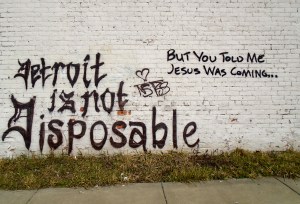 Detroit
is not
Disposable
BUT YOU TOLD ME
JESUS WAS COMING...